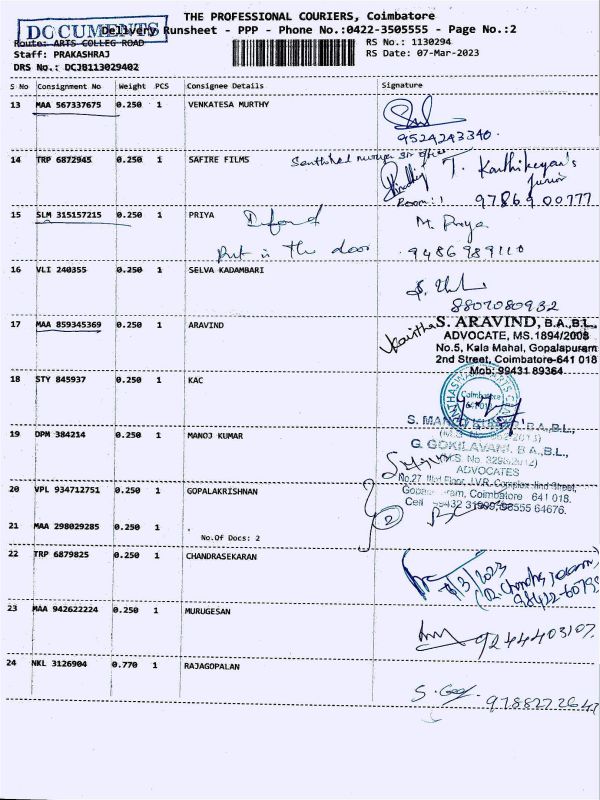 THE PROFESSIONAL COURIERS, Coimbatore
DOCUMENTS
Delivery Runsheet - PPP - Phone No.:0422-3505555 - Page No.:2
Route: ARTS COLLEG ROAD
RS No.: 1130294
Staff: PRAKASHRAJ
RS Date: 07-Mar-2023
DRS No.: DCJB113029402
S No Consignment No Weight PCS Consignee Details Signature
13 MAA 567337675 0.250 1 VENKATESA MURTHY
9524243340.
14 TRP 6872945 0.250 1 SAFIRE FILMS
T. Karthikeyan's
Junior
Room: 1 97869 00777
15 SLM 315157215 0.250 1 PRIYA M. Priya
Put in the door 9486989110
16 VLI 240355 0.250 1 SELVA KADAMBARI
8807080932
17 MAA 859345369 0.250 1 ARAVIND Kavitha S. ARAVIND, B.A.,B.L.,
ADVOCATE, MS.1894/2008
No.5, Kala Mahal, Gopalapuram
2nd Street, Coimbatore-641 018
Mob: 99431 89364
18 STY 845937 0.250 1 KAC
Coimbatore
641018
19 DPM 384214 0.250 1 MANOJ KUMAR
S. MANOJ KUMAR, B.A.,B.L.,
G. GOKILAVANI, B.A.,B.L.,
ADVOCATES
No.27, IInd Floor, J.V.R. Complex, IInd Street,
Coimbatore 641 018.
20 VPL 934712751 0.250 1 GOPALAKRISHNAN
2
21 MAA 298029285 0.250 1
No.Of Docs: 2
22 TRP 6879825 0.250 1 CHANDRASEKARAN
23 MAA 942622224 0.250 1 MURUGESAN
9244403107.
24 NKL 3126904 0.770 1 RAJAGOPALAN